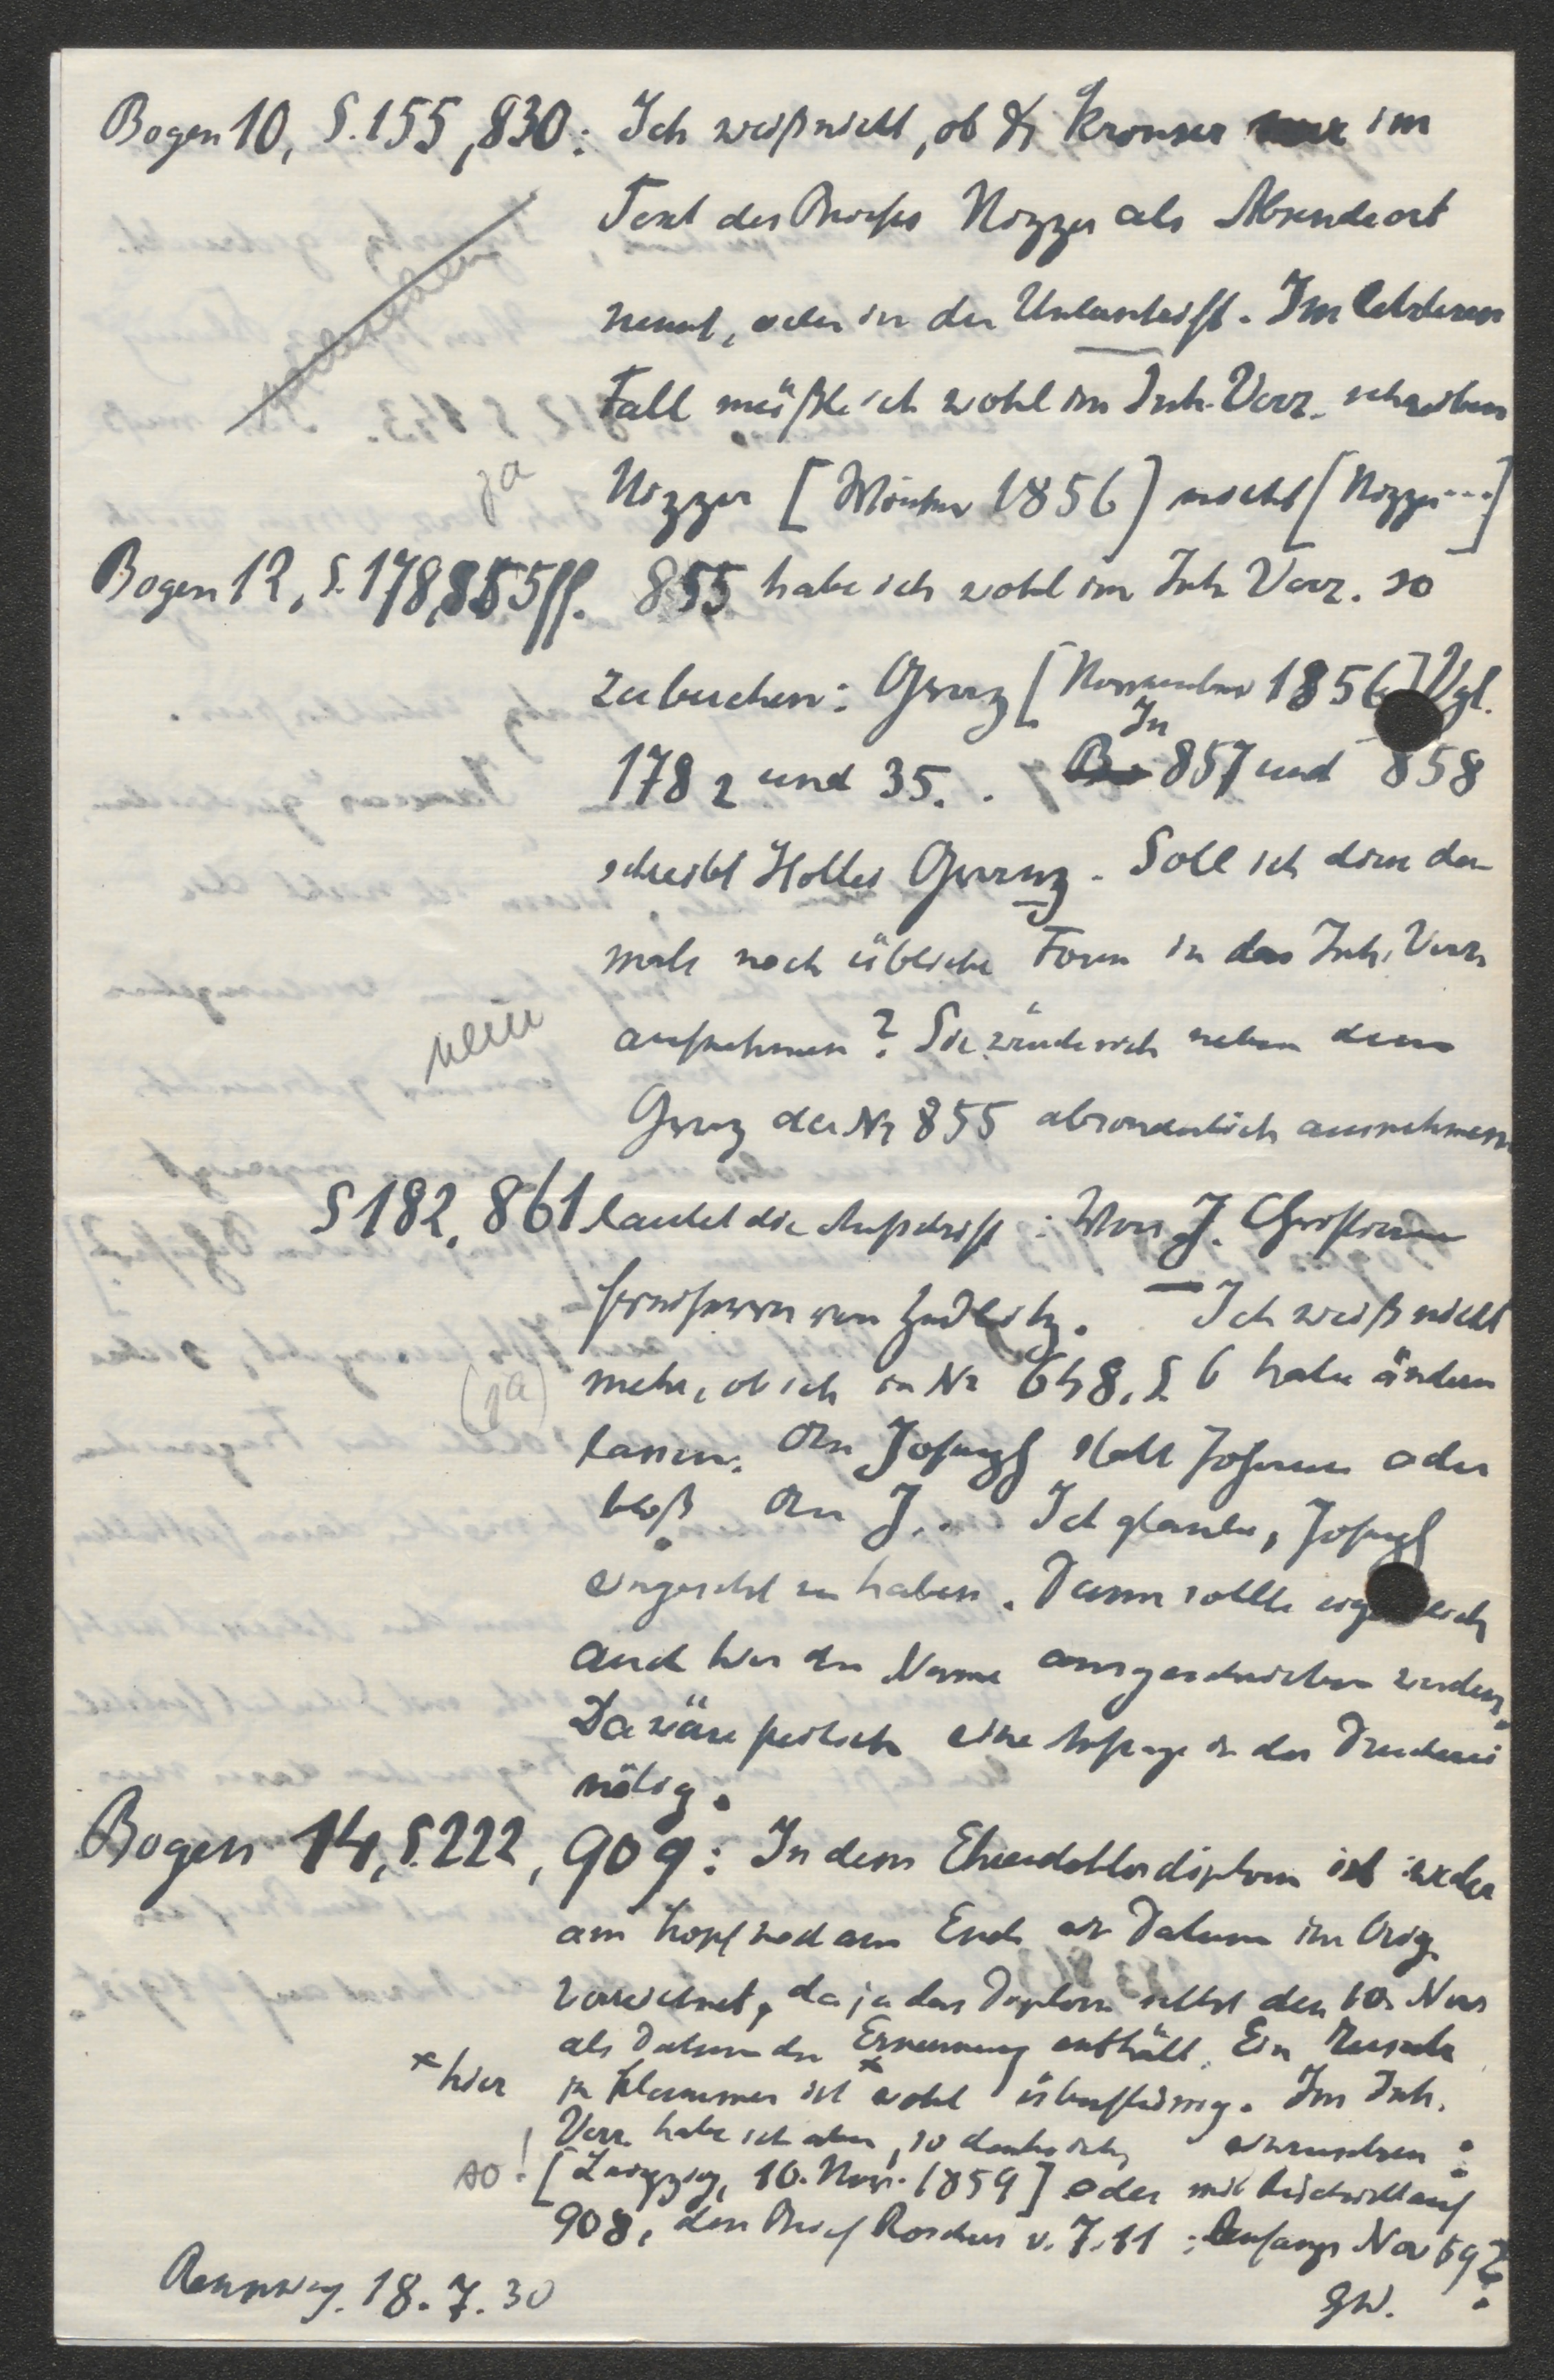 Bogen 10, S. 155, 830: Ich weiß nicht, ob Fr Kronser im
Text des Briefes Nizza als Absendeort
nennt, oder in der Unterschrift. Im letzteren
Fall müßte ich wohl im Inh. Verz. schreiben
ja
Nizza [Winter 1856] nicht [Nizza ...]
Bogen 12, S. 178, 855 ff. 855 habe ich wohl im Inh Verz. so
zu buchen: Graz [November 1856] Vgl.
178 2 und 35. . In 857 und 858
schreibt Holtei Graez. Soll ich diese da-
mals noch übliche Form in das Inh. Verz
aufnehmen? Sie würde sich neben dem
nein
Graz der Nr 855 absonderlich ausnehmen
S 182, 861 lautet die Aufschrift: Von J. Christian
Freiherrn von Zedlitz. — Ich weiß nicht
mehr, ob ich in Nr 648, S. 6 habe ändern
(ja)
lassen: An Joseph statt Johann oder
bloß An J... Ich glaube, Joseph
eingesetzt zu haben. Dann sollte eigentlich
auch hier der Name ausgeschrieben werden.
Da wäre freilich eine Anfrage in der Druckerei
nötig.
Bogen 14, S. 222, 909: In dem Ehrendoktordiplom ist weder
am Kopf noch am Ende ein Datum im Orig.
verzeichnet, da ja das Diplom selbst den 10. Nov
als Datum der Ernennung enthält. Ein Zusatz
* hier
in Klammer ist * wohl überflüssig. Im Inh.
Verz. habe ich aber, so denke ich, einzusetzen:
so! [Leipzig, 10. Nov. 1859] oder mit Rücksicht auf
908, den Brief Roschers v. 7. 11: Anfangs Nov 59?
Rennweg. 18. 7. 30
GW.